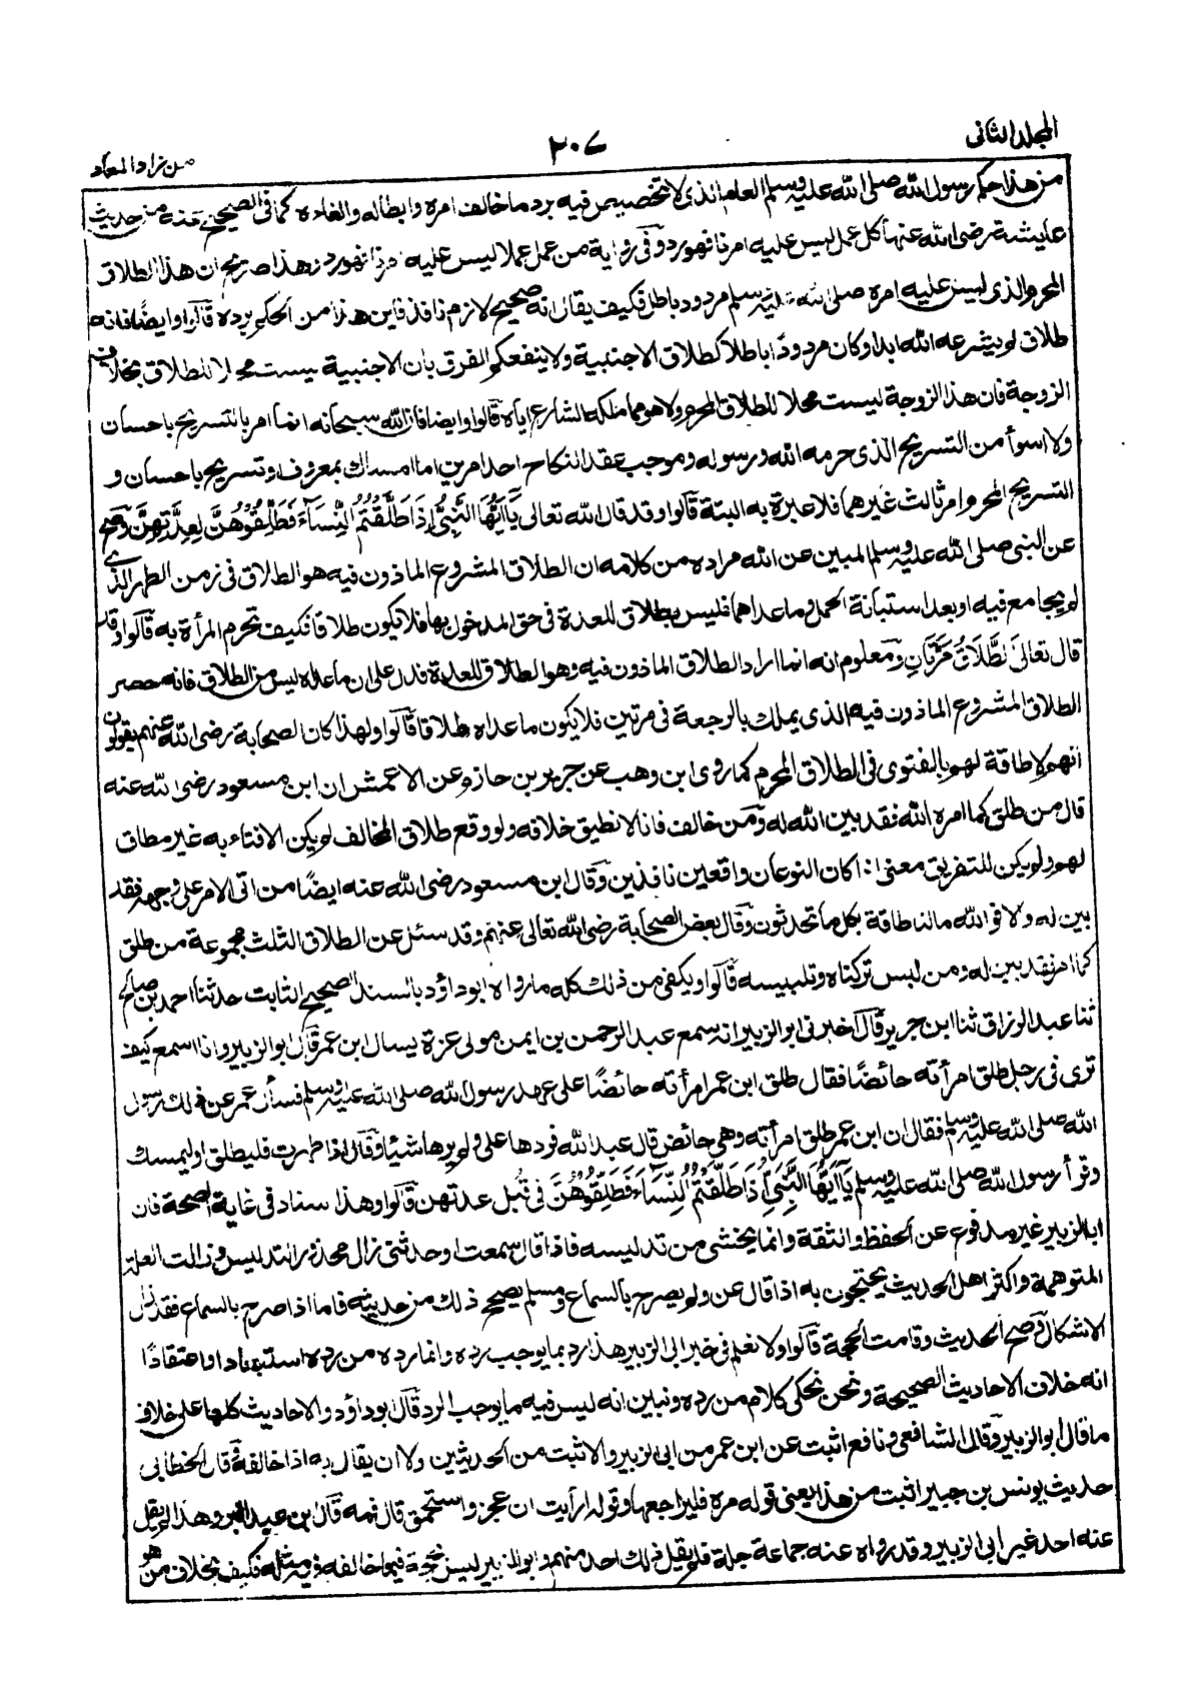 المجلد الثانى
٢٠٧
من زاد المعاد
من هذا حكم رسول الله صلى الله عليه وسلم العام الذى لا تخصيص فيه برد ما خالف امره وابطاله والغائه كما فى الصحيح عنه من حديث
عايشة رضى الله عنها كل عمل ليس عليه امرنا فهو رد وفى رواية من عمل عملا ليس عليه امرنا فهو رد وهذا صريح ان هذا الطلاق
المحرم الذى ليس عليه امره صلى الله عليه وسلم مردود باطل فكيف يقال انه صحيح لازم نافذ فاين هذا من الحكم برده قالوا وايضًا فانه
طلاق لم يشرعه الله ابدا وكان مردودًا باطلا كطلاق الاجنبية ولا ينفعكم الفرق بان الاجنبية ليست محلا للطلاق بخلاف
الزوجة فان هذا الزوجة ليست محلا للطلاق المحرم ولا هو مما ملكه الشارع اياه قالوا وايضا فان الله سبحانه انما امر بالتسريح باحسان
ولا اسوأ من التسريح الذى حرمه الله ورسوله وموجب عقد النكاح احد امرين اما امساك بمعروف وتسريح باحسان و
التسريح المحرم امر ثالث غيرهما فلا عبرة به البتة قالوا وقد قال الله تعالى يَآ اَيُّهَا النَّبِىُّ اِذَا طَلَّقْتُمُ النِّسَآءَ فَطَلِّقُوْهُنَّ لِعِدَّتِهِنَّ وصح
عن النبى صلى الله عليه وسلم المبين عن الله مراده من كلامه ان الطلاق المشروع الماذون فيه هو الطلاق فى زمن الطهر الذى
لم يجامع فيه او بعد استبانة الحمل وما عداهما فليس بطلاق للعدة فى حق المدخول بها فلا يكون طلاقا فكيف تحرم المرأة به قالوا وقد
قال تعالى اَلطَّلَاقُ مَرَّتَانِ ومعلوم انه انما اراد الطلاق الماذون فيه وهو الطلاق للعدة فدل على ان ما عداه ليس من الطلاق فانه حصر
الطلاق المشروع الماذون فيه الذى يملك بالرجعة فى مرتين فلا يكون ما عداه طلاقا قالوا ولهذا كان الصحابة رضى الله عنهم يقولون
انهم لا طاقة لهم بالفتوى فى الطلاق المحرم كما روى ابن وهب عن جرير بن حازم عن الاعمش ان ابن مسعود رضى الله عنه
قال من طلق كما امره الله فقد بين الله له ومن خالف فانا لا نطيق خلافه ولو وقع طلاق المخالف لم يكن الافتاء به غير مطاق
لهم ولم يكن للتفريق معنى اذا كان النوعان واقعين نافذين وقال ابن مسعود رضى الله عنه ايضًا من اتى الامر على وجهه فقد
بين له والا فو الله مالنا طاقة بكل ما تحدثون وقال بعض الصحابة رضى الله تعالى عنهم وقد سئل عن الطلاق الثلث مجموعة من طلق
كما امر فقد بين له ومن لبس تركناه وتلبيسه قالوا ويكفى من ذلك كله ما رواه ابوداؤد بالسند الصحيح الثابت حدثنا احمد بن صالح
ثنا عبدالرزاق ثنا ابن جريج قال اخبرنى ابو الزبير انه سمع عبد الرحمن بن ايمن مولى عزة يسال ابن عمر قال ابو الزبير وانا اسمع كيف
ترى فى رجل طلق امرأته حائضًا فقال طلق ابن عمر امرأته حائضًا على عهد رسول الله صلى الله عليه وسلم فسأل عمر عن ذلك رسول
الله صلى الله عليه وسلم فقال ان ابن عمر طلق امرأته وهى حائض قال عبد الله فردها على ولم يرها شيئا وقال اذا طهرت فليطلق او ليمسك
وقرأ رسول الله صلى الله عليه وسلم يَآ اَيُّهَا النَّبِىُّ اِذَا طَلَّقْتُمُ النِّسَآءَ فَطَلِّقُوْهُنَّ فى قُبل عدتهن قالوا وهذا اسناد فى غاية الصحة فان
ابا الزبير غير مدفوع عن الحفظ والثقة وانما يخشى من تدليسه فاذا قال سمعت او حدثنى زال محذور التدليس وزالت العلة
المتوهمة واكثر اهل الحديث يحتجون به اذا قال عن ولم يصرح بالسماع ومسلم يصحح ذلك من حديثه فاما اذا صرح بالسماع فقد زال
الاشكال وصح الحديث وقامت الحجة قالوا ولا نعلم فى خبر ابى الزبير هذا رد بما يوجب رده وانما رده من رده استبعادا واعتقادًا
انه خلاف الاحاديث الصحيحة ونحن نحكى كلام من رده ونبين انه ليس فيه ما يوجب الرد قال ابوداؤد والاحاديث كلها على خلاف
ما قال ابو الزبير وقال الشافعى ونافع اثبت عن ابن عمر من ابى الزبير والاثبت من الحديثين ولا ان يقال به اذا خالفه وقال الخطابى
حديث يونس بن جبير اثبت من هذا يعنى قوله مره فليراجعها وقوله ارأيت ان عجز واستحمق قال فمه قال ابن عبد البر وهذا لم يقل
عنه احد غير ابى الزبير وقد رواه عنه جماعة جلة فلم يقل ذلك احد منهم وابو الزبير ليس بحجة فيما خالفه فيه مثله فكيف بخلاف من هو